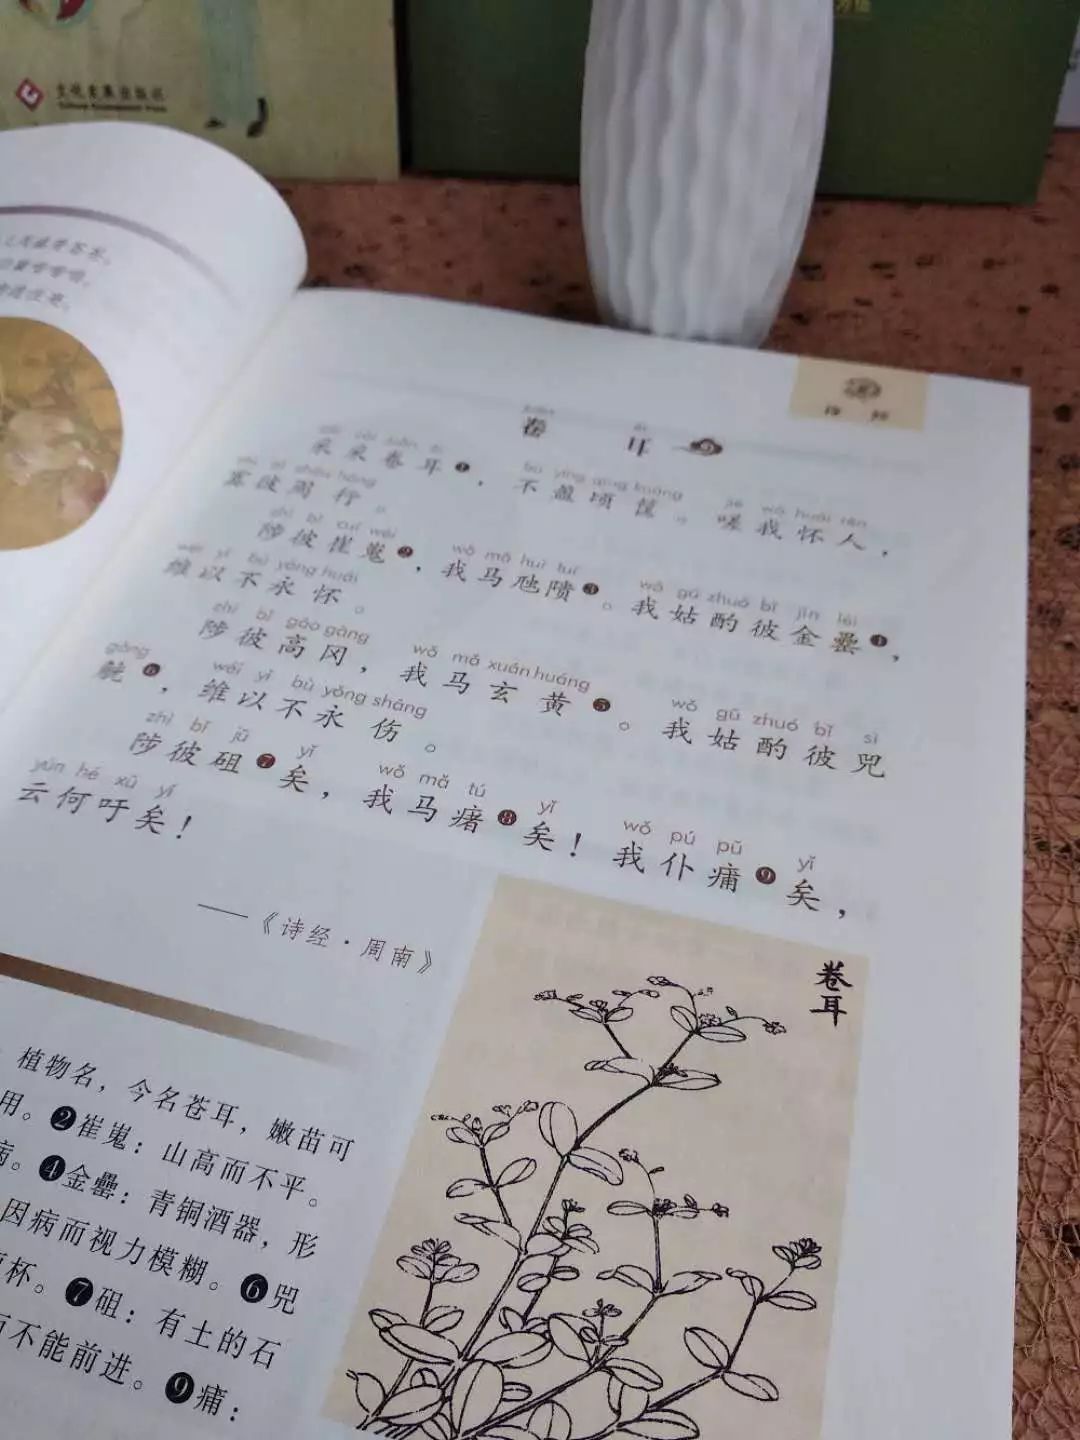 文化发展出版社
卷耳
juǎn ěr
cǎi cǎi juǎn ěr bù yíng qīng kuāng jiē wǒ huái rén
采采卷耳❶，不盈顷筐。嗟我怀人，
zhì bǐ zhōu háng
寘彼周行。
zhì bǐ cuī wéi wǒ mǎ huī tuí wǒ gū zhuó bǐ jīn léi
陟彼崔嵬❷，我马虺隤❸。我姑酌彼金罍❹，
wéi yǐ bù yǒng huái
维以不永怀。
zhì bǐ gāo gāng wǒ mǎ xuán huáng wǒ gū zhuó bǐ sì
陟彼高冈，我马玄黄❺。我姑酌彼兕
gōng wéi yǐ bù yǒng shāng
觥❻，维以不永伤。
zhì bǐ jū yǐ wǒ mǎ tú yǐ wǒ pú pū yǐ
陟彼砠❼矣，我马瘏❽矣！我仆痡❾矣，
yún hé xū yǐ
云何吁矣！
——《诗经·周南》
卷耳
植物名，今名苍耳，嫩苗可
用。❷崔嵬：山高而不平。
病。❹金罍：青铜酒器，形
因病而视力模糊。❻兕
杯。❼砠：有土的石
而不能前进。❾痡：